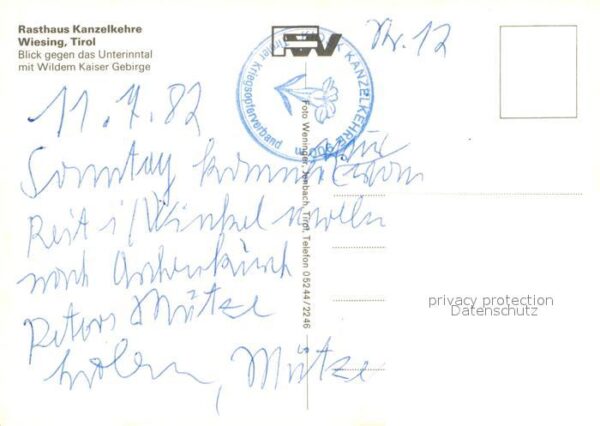 Rasthaus Kanzelkehre
Wiesing, Tirol
Blick gegen das Unterinntal
mit Wildem Kaiser Gebirge
Nr. 12
KANZELKEHRE
Tiroler Kriegsopferverband
Foto Weninger, Jenbach, Tirol, Telefon 05244/2246
11.7.82
Sonntag kommen wir von
Reit i/Winkel
noch
Peters Mütze
holen, Mütze
privacy protection
Datenschutz